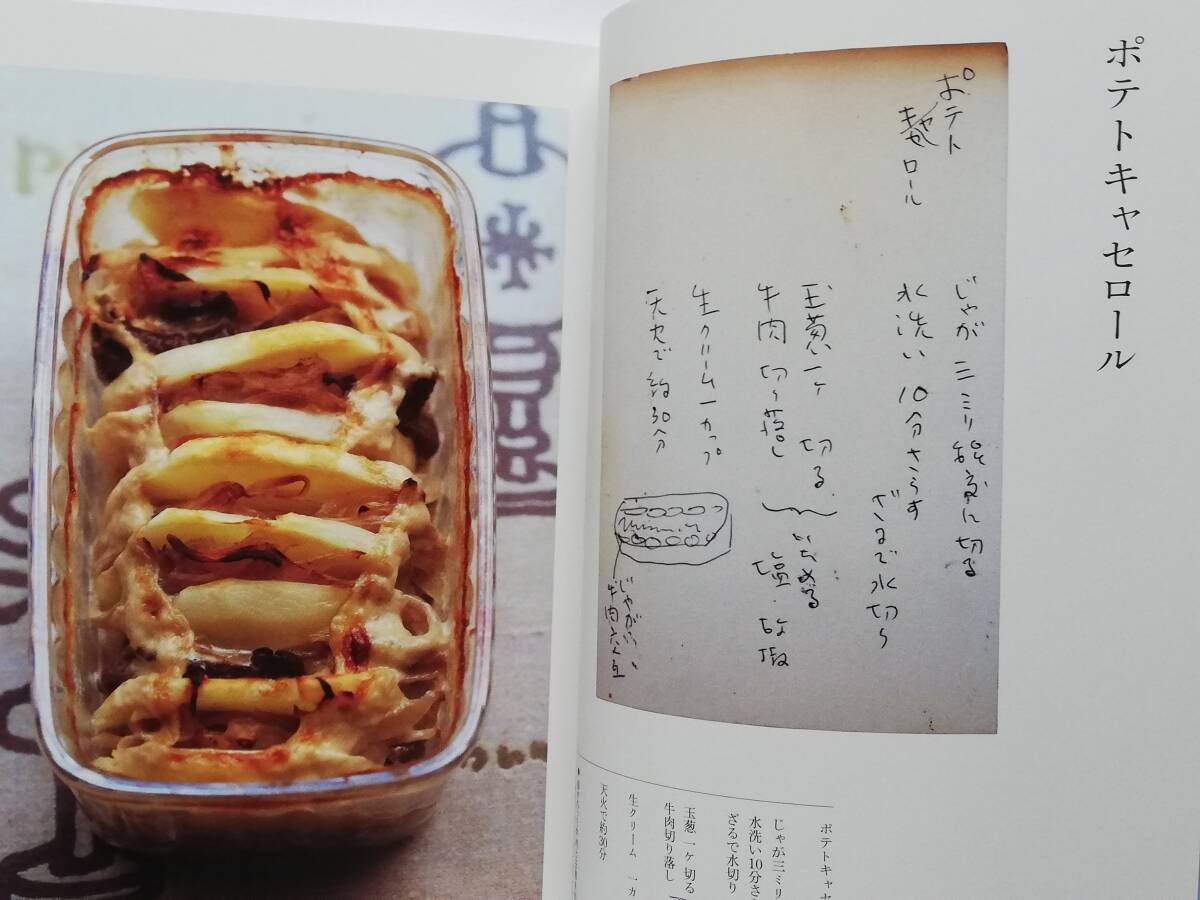 ポテトキャセロール
ポテト
キャセロール
じゃが 三ミリ程度に切る
水洗い 10分さらす
ざるで水切り
玉葱一ヶ 切る
牛肉 切り落し
いためる
塩・故椒
生クリーム一カップ
天火で約30分
じゃがいも
牛肉交互
ポテトキャセ
じゃが三ミリ
水洗い10分さ
ざるで水切り
玉葱一ヶ切る
牛肉切り落し
生クリーム 一カ
天火で約30分